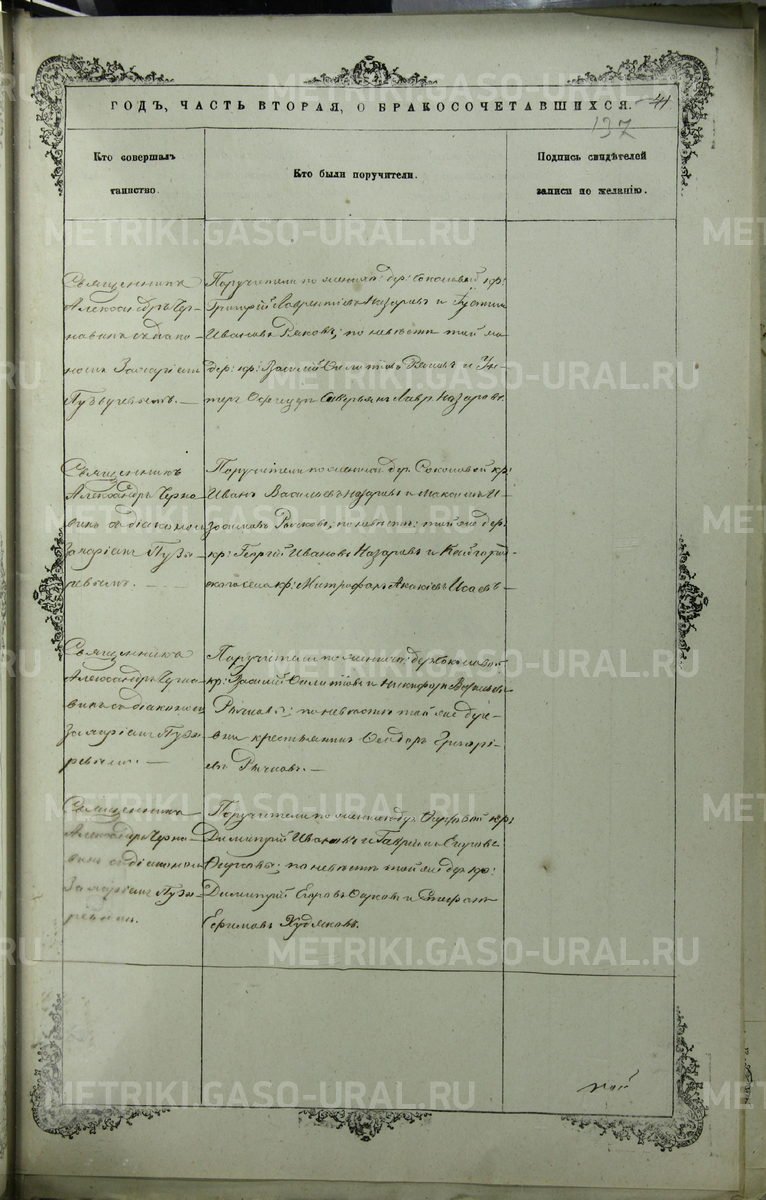 ГОДЪ, ЧАСТЬ ВТОРАЯ, О БРАКОСОЧЕТАВШИХСЯ.
44
137
Кто совершалъ
таинство.
Кто были поручители.
Подпись свидѣтелей
записи по желанію.
Священникъ
Александръ Черно-
винъ съ діако-
номъ Захаріемъ
Пузыревымъ. —
Поручители по женихѣ: дер: Соколовой кр:
Григорій Лаврентіевъ Назаровъ и
Ивановъ; по невѣстѣ той же
дер: кр: Василій Филатовъ и Ун-
теръ Офицеръ Лавр Назаровъ.
Священникъ
Александръ Черно-
винъ съ діакономъ
Захаріемъ Пузы-
ревымъ. —
Поручители по женихѣ дер. Соколовой кр:
Иванъ Васильевъ Назаровъ и Максимъ И-
зосимовъ Рычковъ; по невѣстѣ: той же дер.
кр: Георгій Ивановъ Назаровъ и Кайгород-
скаго села кр: Митрофанъ Акакіевъ Исаевъ
Священникъ
Александръ Черно-
винъ съ діакономъ
Захаріемъ Пузы-
ревымъ. —
Поручители по женихѣ: дер. Соколовой
кр: Василій Филатовъ и Никифоръ Васильевъ
Рычковы; по невѣстѣ той же дере-
вни крестьянинъ Ѳеодоръ Григорі-
евъ Рычковъ. —
Священникъ
Александръ Черно-
винъ съ діакономъ
Захаріемъ Пузы-
ревымъ.
Поручители по женихѣ дер. кр:
Димитрій Ивановъ и Гавріилъ Егоровъ
; по невѣстѣ той же дер. кр:
Димитрій Егоровъ и Стефанъ
Ефимовъ Худяковъ.
METRIKI.GASO-URAL.RU